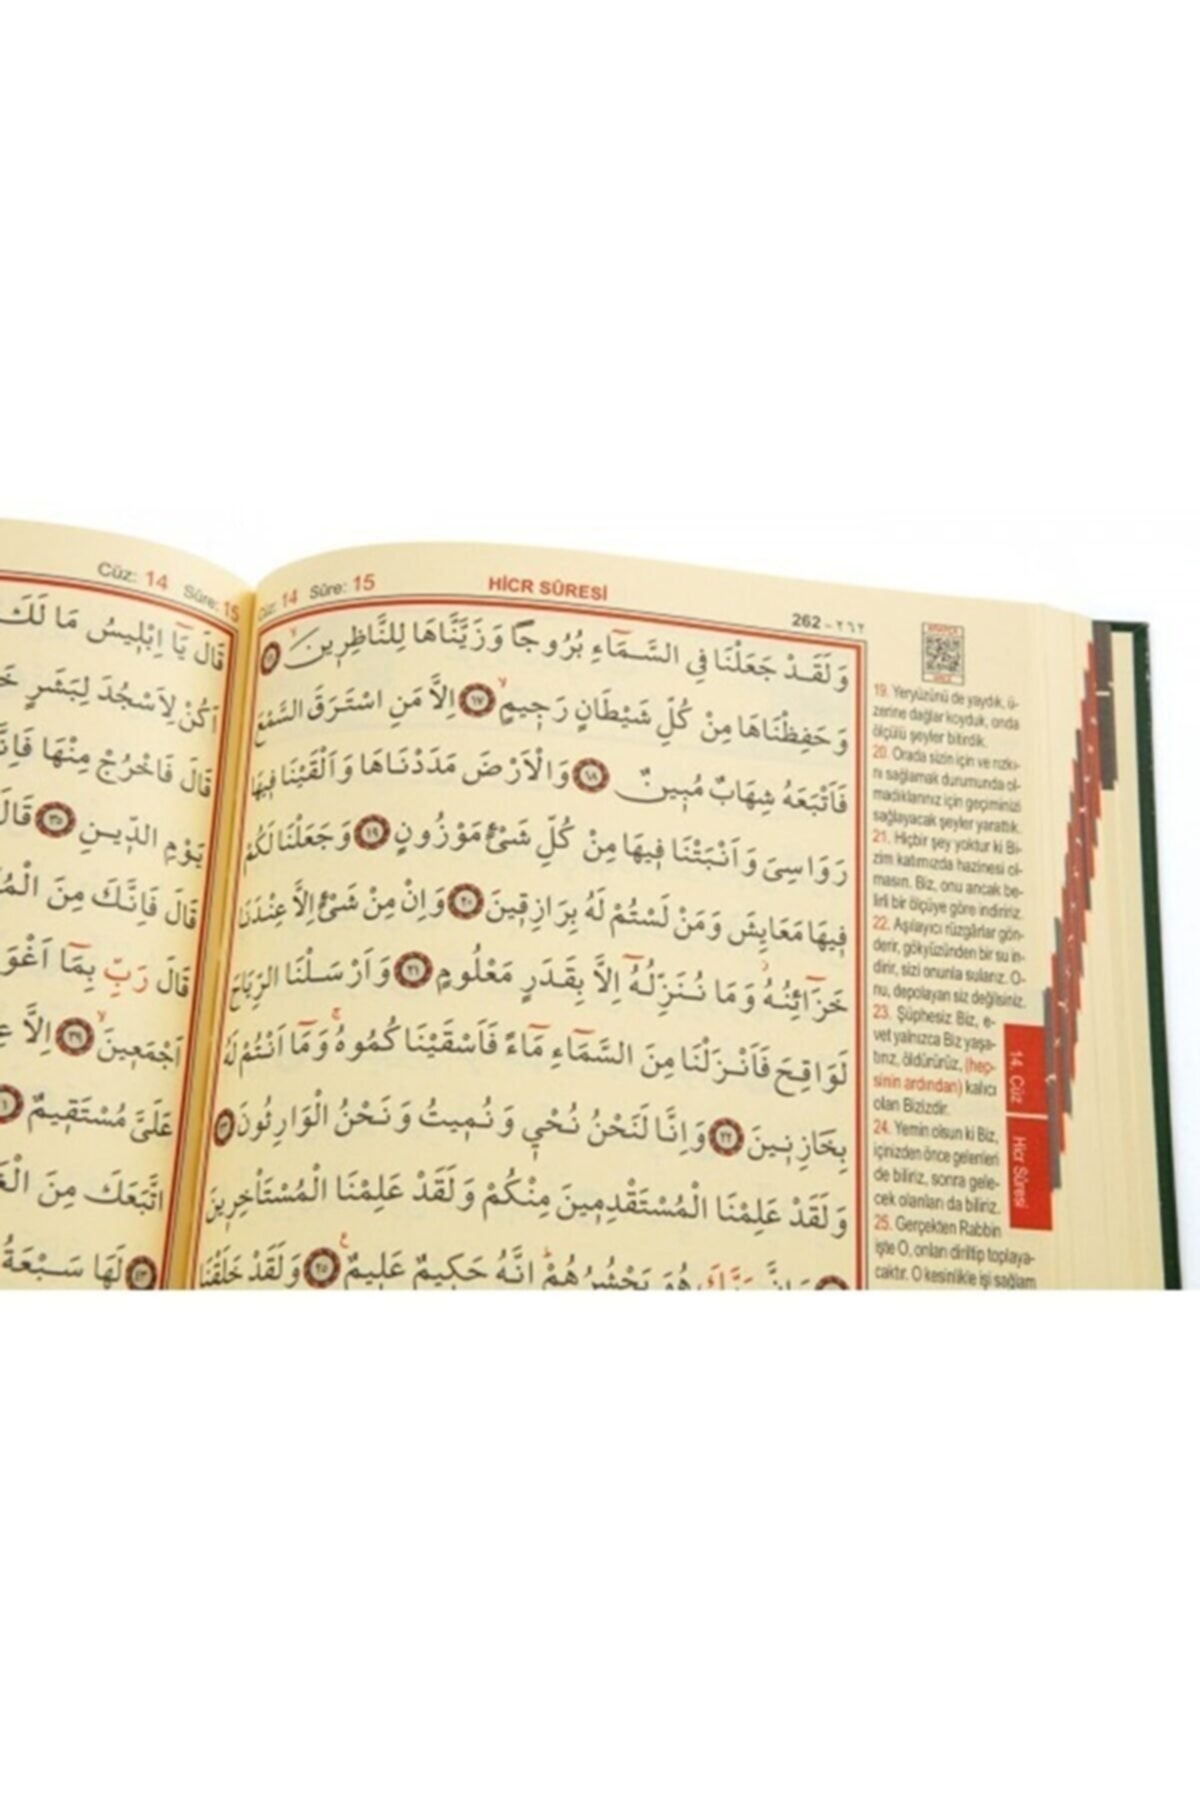 Cüz: 14 Sûre: 15
قَالَ يَٓا اِبْلِيسُ مَا لَكَ
اَكُنْ لِاَسْجُدَ لِبَشَرٍ
قَالَ فَاخْرُجْ مِنْهَا
يَوْمِ الدّ۪ينِ ﴿٣٥﴾ قَالَ
قَالَ فَاِنَّكَ مِنَ
قَالَ رَبِّ بِمَٓا
اَجْمَع۪ينَۙ ﴿٣٩﴾ اِلَّا
عَلَيَّ مُسْتَق۪يمٌ
اتَّبَعَكَ مِنَ
﴿٤٣﴾ لَهَا سَبْعَةُ
Cüz: 14 Sûre: 15 HİCR SÛRESİ
262 - ٢٦٢
وَلَقَدْ جَعَلْنَا فِي السَّمَٓاءِ بُرُوجًا وَزَيَّنَّاهَا لِلنَّاظِر۪ينَۙ ﴿١٦﴾
وَحَفِظْنَاهَا مِنْ كُلِّ شَيْطَانٍ رَج۪يمٍۙ ﴿١٧﴾ اِلَّا مَنِ اسْتَرَقَ السَّمْعَ
فَاَتْبَعَهُ شِهَابٌ مُب۪ينٌ ﴿١٨﴾ وَالْاَرْضَ مَدَدْنَاهَا وَاَلْقَيْنَا ف۪يهَا
رَوَاسِيَ وَاَنْبَتْنَا ف۪يهَا مِنْ كُلِّ شَيْءٍ مَوْزُونٍ ﴿١٩﴾ وَجَعَلْنَا لَكُمْ
ف۪يهَا مَعَايِشَ وَمَنْ لَسْتُمْ لَهُ بِرَازِق۪ينَ ﴿٢٠﴾ وَاِنْ مِنْ شَيْءٍ اِلَّا عِنْدَنَا
خَزَٓائِنُهُۘ وَمَا نُنَزِّلُهُٓ اِلَّا بِقَدَرٍ مَعْلُومٍ ﴿٢١﴾ وَاَرْسَلْنَا الرِّيَاحَ
لَوَاقِحَ فَاَنْزَلْنَا مِنَ السَّمَٓاءِ مَٓاءً فَاَسْقَيْنَاكُمُوهُۚ وَمَٓا اَنْتُمْ لَهُ
بِخَازِن۪ينَ ﴿٢٢﴾ وَاِنَّا لَنَحْنُ نُحْي۪ وَنُم۪يتُ وَنَحْنُ الْوَارِثُونَ ﴿٢٣﴾
وَلَقَدْ عَلِمْنَا الْمُسْتَقْدِم۪ينَ مِنْكُمْ وَلَقَدْ عَلِمْنَا الْمُسْتَأْخِر۪ينَ
وَاِنَّ رَبَّكَ هُوَ يَحْشُرُهُمْۜ اِنَّهُ حَك۪يمٌ عَل۪يمٌ ﴿٢٥﴾ وَلَقَدْ خَلَقْنَا
19. Yeryüzünü de yaydık, ü-
zerine dağlar koyduk, onda
ölçülü şeyler bitirdik.
20. Orada sizin için ve rızkı-
nı sağlamak durumunda ol-
madıklarınız için geçiminizi
sağlayacak şeyler yarattık.
21. Hiçbir şey yoktur ki Bi-
zim katımızda hazinesi ol-
masın. Biz, onu ancak be-
lirli bir ölçüye göre indiririz.
22. Aşılayıcı rüzgârlar gön-
derir, gökyüzünden bir su in-
dirir, sizi onunla sularız. O-
nu, depolayan siz değilsiniz.
23. Şüphesiz Biz, e-
vet yalnızca Biz yaşa-
tırız, öldürürüz, (hep-
sinin ardından) kalıcı
olan Bizizdir.
24. Yemin olsun ki Biz,
içinizden önce gelenleri
de biliriz, sonra gele-
cek olanları da biliriz.
25. Gerçekten Rabbin
işte O, onları diriltip toplaya-
caktır. O kesinlikle işi sağlam
14. Cüz
Hicr Sûresi